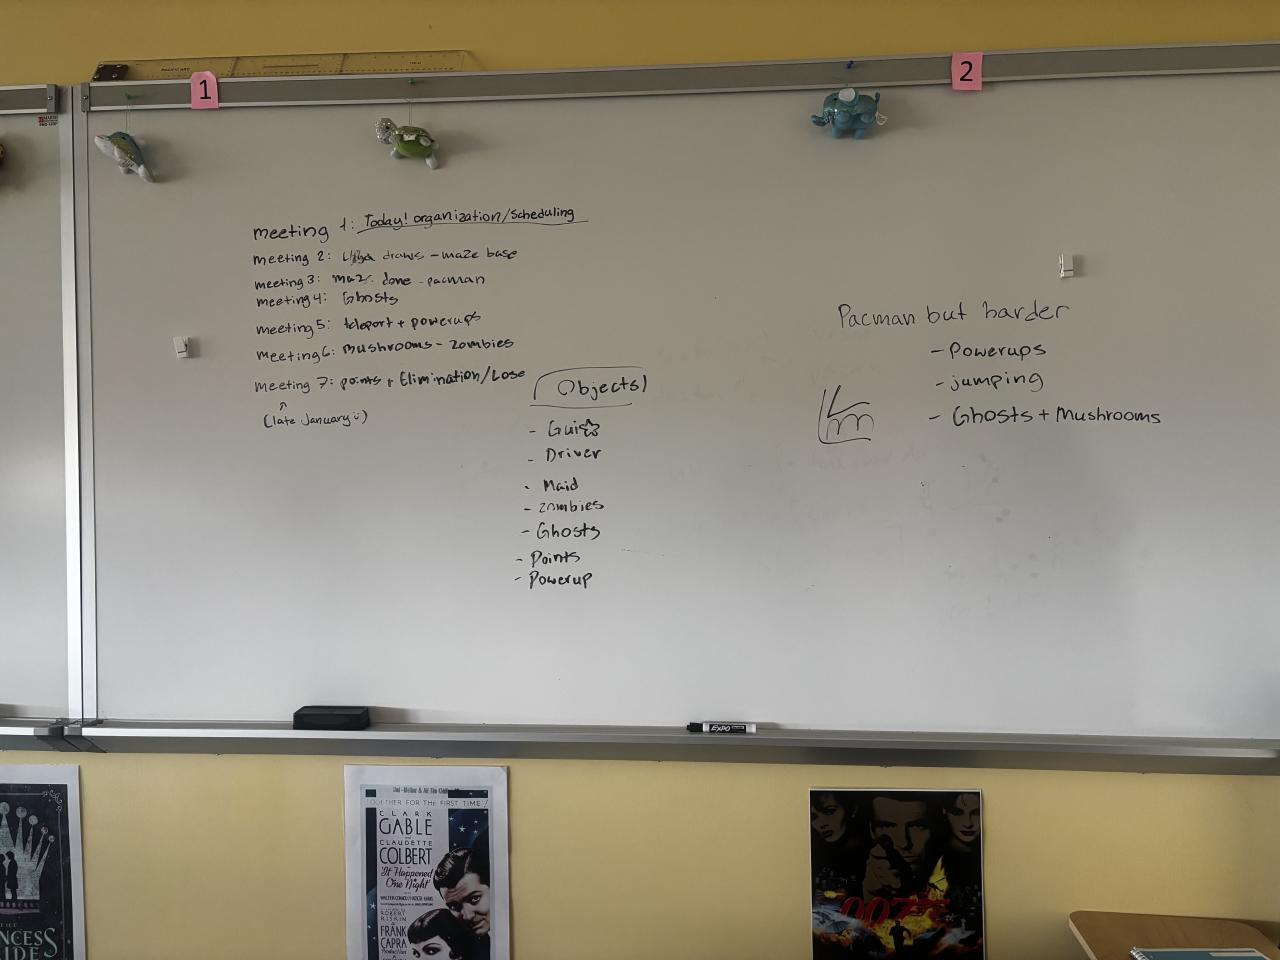 1
2
meeting 1: Today! organization/scheduling
meeting 2: draws - maze base
meeting 3: maze done - pacman
meeting 4: Ghosts
meeting 5: teleport + powerups
meeting 6: mushrooms - zombies
meeting 7: points + Elimination/Lose
(late January)
Objects
- Driver
- Maid
- zombies
- Ghosts
- Points
- Powerup
Pacman but harder
- Powerups
- jumping
- Ghosts + Mushrooms
EXPO
TOGETHER FOR THE FIRST TIME!
CLARK
GABLE
and
CLAUDETTE
COLBERT
"It Happened
One Night"
ROBERT
RISKIN
FRANK
CAPRA
007